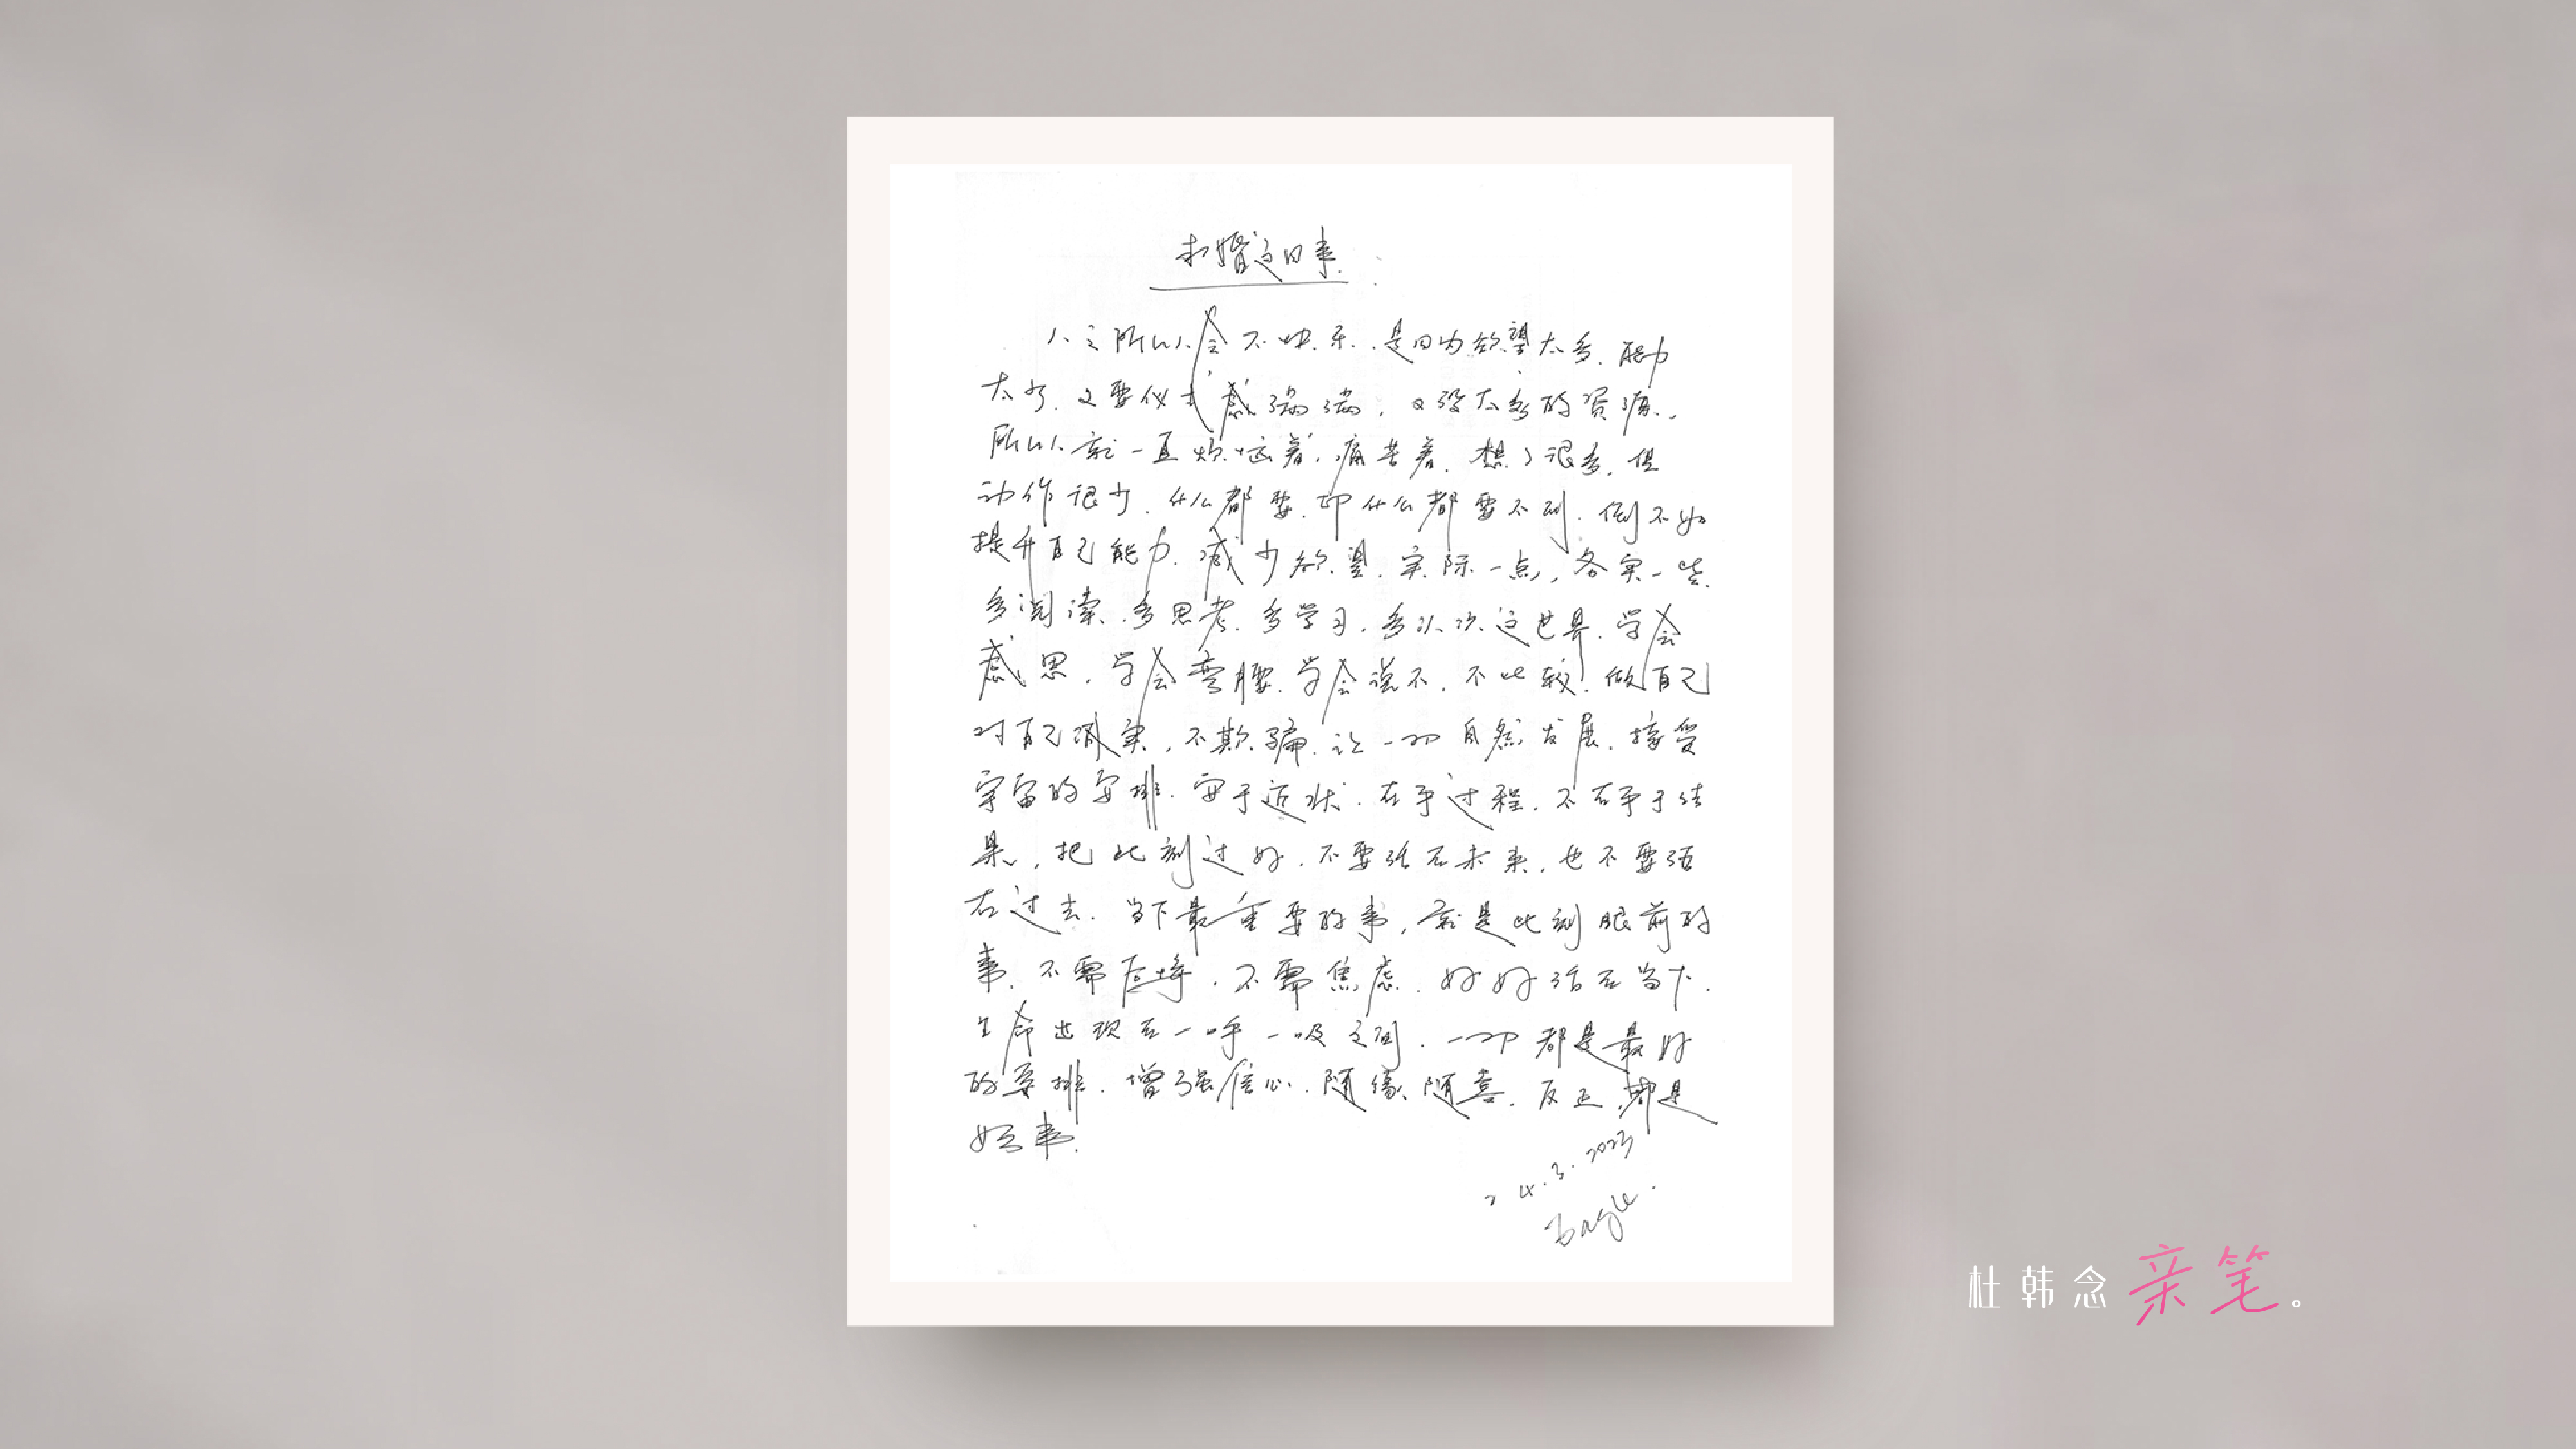 求婚这回事.
人之所以会不快乐.是因为欲望太多.能力
太少.又要仪式感满满,又没太多的资源,
所以就一直烦恼着.痛苦着.想了很多,但
动作很少.什么都要.却什么都要不到.倒不如
提升自己能力.减少欲望.实际一点,务实一些.
多阅读.多思考.多学习.多认识这世界.学会
感恩.学会弯腰.学会说不.不比较.做自己
对自己诚实,不欺骗.让一切自然发展.接受
宇宙的安排.安于近状.在乎过程.不在乎于结
果,把此刻过好.不要活在未来.也不要活
在过去.当下最重要的事,就是此刻眼前的
事.不需,不需焦虑.好好活在当下.
生命出现在一呼一吸之间.一切都是最好
的安排.增强信心.随缘随喜.反正,都是
好事.
24.3.2023
Eagle.
杜韩念亲笔。